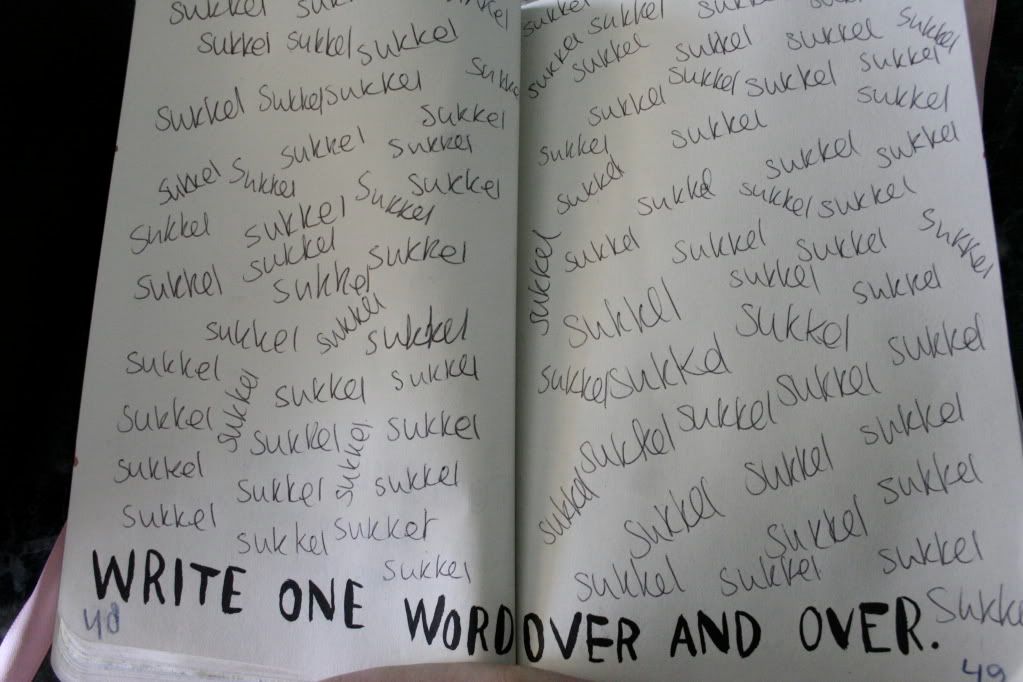 sukkel
sukkel sukkel sukkel
sukkel sukkel sukkel
sukkel
sukkel sukkel
sukkel sukkel sukkel sukkel
sukkel sukkel
sukkel sukkel
sukkel sukkel
sukkel sukkel sukkel
sukkel sukkel sukkel
sukkel sukkel sukkel sukkel
sukkel sukkel sukkel sukkel
sukkel sukkel sukkel
sukkel
sukkel sukkel
sukkel sukkel sukkel sukkel sukkel
sukkel sukkel sukkel
sukkel sukkel sukkel
sukkel sukkel sukkel
sukkel sukkel sukkel sukkel
sukkel sukkel sukkel sukkel
sukkel sukkel sukkel
sukkel sukkel
sukkel sukkel sukkel
sukkel sukkel sukkel
sukkel sukkel sukkel
sukkel sukkel sukkel
sukkel sukkel sukkel
sukkel
WRITE ONE WORD OVER AND OVER.
48 49